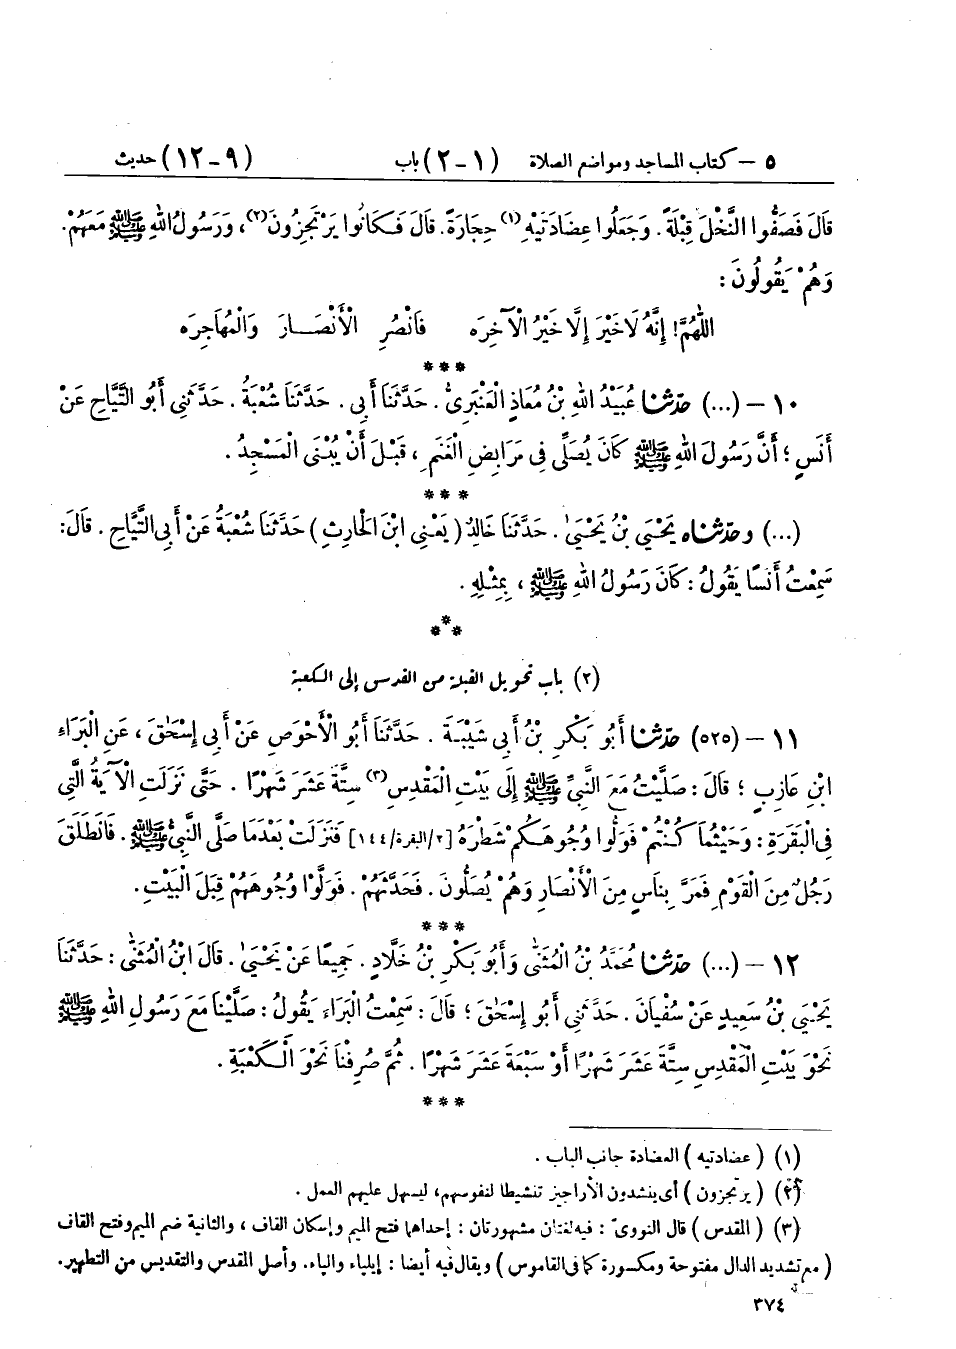 ٥ — كتاب المساجد ومواضع الصلاة (١-٢) باب (٩-١٢) حديث
قَالَ فَصَفُّوا النَّخْلَ قِبْلَةً. وَجَعَلُوا عِضَادَتَيْهِ(١) حِجَارَةً. قَالَ فَكَانُوا يَرْتَجِزُونَ(٢)، وَرَسُولُ اللهِ ﷺ مَعَهُمْ.
وَهُمْ يَقُولُونَ:
اللّٰهُمَّ! إِنَّهُ لَا خَيْرَ إِلَّا خَيْرُ الْآخِرَه فَانْصُرِ الْأَنْصَارَ وَالْمُهَاجِرَه
***
١٠ — (...) حدّثنا عُبَيْدُ اللهِ بْنُ مُعَاذٍ الْعَنْبَرِيُّ. حَدَّثَنَا أَبِي. حَدَّثَنَا شُعْبَةُ. حَدَّثَنِي أَبُو التَّيَّاحِ عَنْ
أَنَسٍ؛ أَنَّ رَسُولَ اللهِ ﷺ كَانَ يُصَلِّي فِي مَرَابِضِ الْغَنَمِ، قَبْلَ أَنْ يُبْنَى الْمَسْجِدُ.
***
(...) وحدّثناه يَحْيَىٰ بْنُ يَحْيَىٰ. حَدَّثَنَا خَالِدٌ (يَعْنِي ابْنَ الْحَارِثِ) حَدَّثَنَا شُعْبَةُ عَنْ أَبِي التَّيَّاحِ. قَالَ:
سَمِعْتُ أَنَسًا يَقُولُ: كَانَ رَسُولُ اللهِ ﷺ، بِمِثْلِهِ.
***
(٢) باب تحويل القبلة من القدس إلى الكعبة
١١ — (٥٢٥) حدّثنا أَبُو بَكْرِ بْنُ أَبِي شَيْبَةَ. حَدَّثَنَا أَبُو الْأَحْوَصِ عَنْ أَبِي إِسْحَٰقَ، عَنِ الْبَرَاءِ
ابْنِ عَازِبٍ؛ قَالَ: صَلَّيْتُ مَعَ النَّبِيِّ ﷺ إِلَى بَيْتِ الْمَقْدِسِ(٣) سِتَّةَ عَشَرَ شَهْرًا. حَتَّى نَزَلَتِ الْآيَةُ الَّتِي
فِي الْبَقَرَةِ: وَحَيْثُمَا كُنْتُمْ فَوَلُّوا وُجُوهَكُمْ شَطْرَهُ [٢/البقرة/١٤٤] فَنَزَلَتْ بَعْدَمَا صَلَّى النَّبِيُّ ﷺ. فَانْطَلَقَ
رَجُلٌ مِنَ الْقَوْمِ فَمَرَّ بِنَاسٍ مِنَ الْأَنْصَارِ وَهُمْ يُصَلُّونَ. فَحَدَّثَهُمْ. فَوَلَّوْا وُجُوهَهُمْ قِبَلَ الْبَيْتِ.
***
١٢ — (...) حدّثنا مُحَمَّدُ بْنُ الْمُثَنَّى وَأَبُو بَكْرِ بْنُ خَلَّادٍ. جَمِيعًا عَنْ يَحْيَىٰ. قَالَ ابْنُ الْمُثَنَّى: حَدَّثَنَا
يَحْيَىٰ بْنُ سَعِيدٍ عَنْ سُفْيَانَ. حَدَّثَنِي أَبُو إِسْحَٰقَ؛ قَالَ: سَمِعْتُ الْبَرَاءَ يَقُولُ: صَلَّيْنَا مَعَ رَسُولِ اللهِ ﷺ
نَحْوَ بَيْتِ الْمَقْدِسِ سِتَّةَ عَشَرَ شَهْرًا أَوْ سَبْعَةَ عَشَرَ شَهْرًا. ثُمَّ صُرِفْنَا نَحْوَ الْكَعْبَةِ.
***
(١) (عضادتيه) العضادة جانب الباب.
(٢) (يرتجزون) أي ينشدون الأراجيز تنشيطا لنفوسهم، ليسهل عليهم العمل.
(٣) (المقدس) قال النوويّ: فيه لغتان مشهورتان: إحداها فتح الميم وإسكان القاف، والثانية ضم الميم وفتح القاف
(مع تشديد الدال مفتوحة ومكسورة كما في القاموس) ويقال فيه أيضا: إيلياء والياء. وأصل المقدس والتقديس من التطهير.
٣٧٤